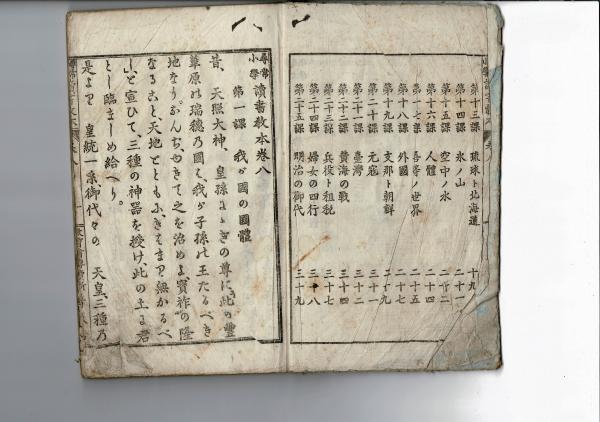 第十三課 琉球ト北海道 十九
第十四課 氷ノ山 二十一
第十五課 空中ノ水 二十二
第十六課 人體 二十四
第十七課 喜望ノ世界 二十五
第十八課 外國 二十七
第十九課 支那ト朝鮮 二十九
第二十課 元寇 三十一
第二十一課 臺灣 三十二
第二十二課 黄海の戰 三十四
第二十三課 兵役ト租税 三十七
第二十四課 婦女の四行 三十八
第二十五課 明治の御代 三十九
尋常小學 讀書教本卷八
第一課 我が國の國體
昔、天照大神、皇孫よゝぎの尊に、此の豐
葦原の瑞穗の國は、我が子孫の王たるべき
地なり。なんぢ、ゆきて之を治めよ、寶祚の隆
なること、天地とともに、きはまり無かるべ
し、と宣ひて、三種の神器を授け、此の土に君
とし臨ましめ給へり。
是より 皇統一系、御代々の 天皇三種乃